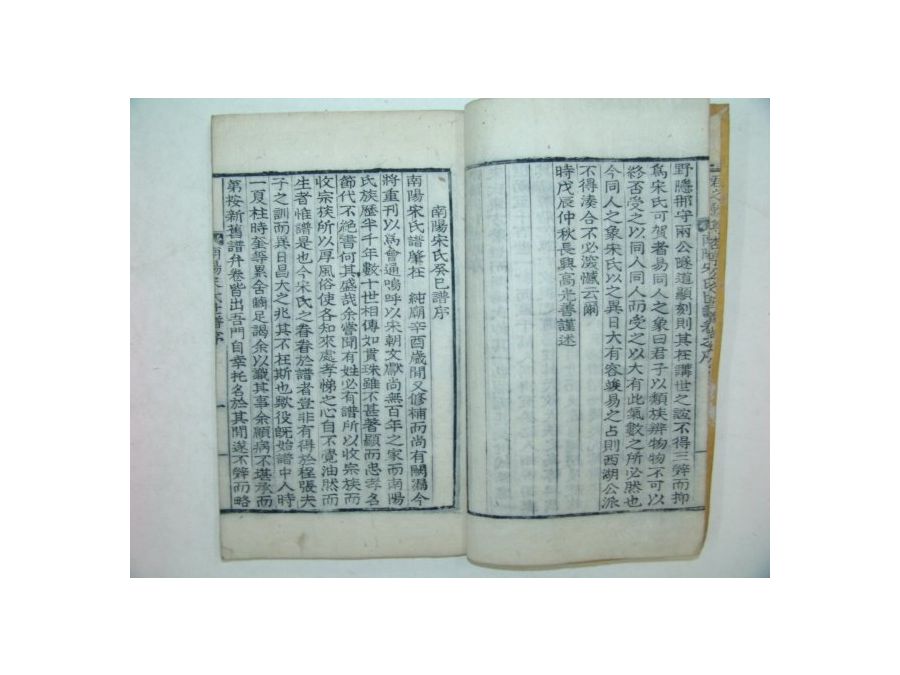 野應挪守兩公隧道顯刻則其在講世之誼不得三辭而抑
爲宋氏可賀者易同人之象曰君子以類族辨物物不可以
終否受之以同人同人而受之以大有此氣數之所必然也
今同人之象宋氏以之異日大有容竢易之占則西湖公派
不得湊合不必爲憾云爾
時戊辰仲秋長興高光善謹述
南陽宋氏癸巳譜序
南陽宋氏譜肇在 純廟辛酉歲間又修補而尚有闕漏今
將重刊以爲會通嗚呼以宋朝文獻尚無百年之家而南陽
氏族歷半千年數十世相傳如貫珠雖不甚著顯而忠孝名
節代不絶書何其盛哉余嘗聞有姓必有譜所以收宗族而
收宗族所以厚風俗使各知來處孝悌之心自不覺油然而
生者惟譜是也今宋氏之眷眷於譜者豈非有得於程張夫
子之訓而異日昌大之兆其不在斯也歟役旣始譜中人時
一夏柱時奎等累舍繭足謁余以識其事余顧病不堪承而
第按新舊譜弁卷皆出吾門自幸托名於其間遂不辭而略